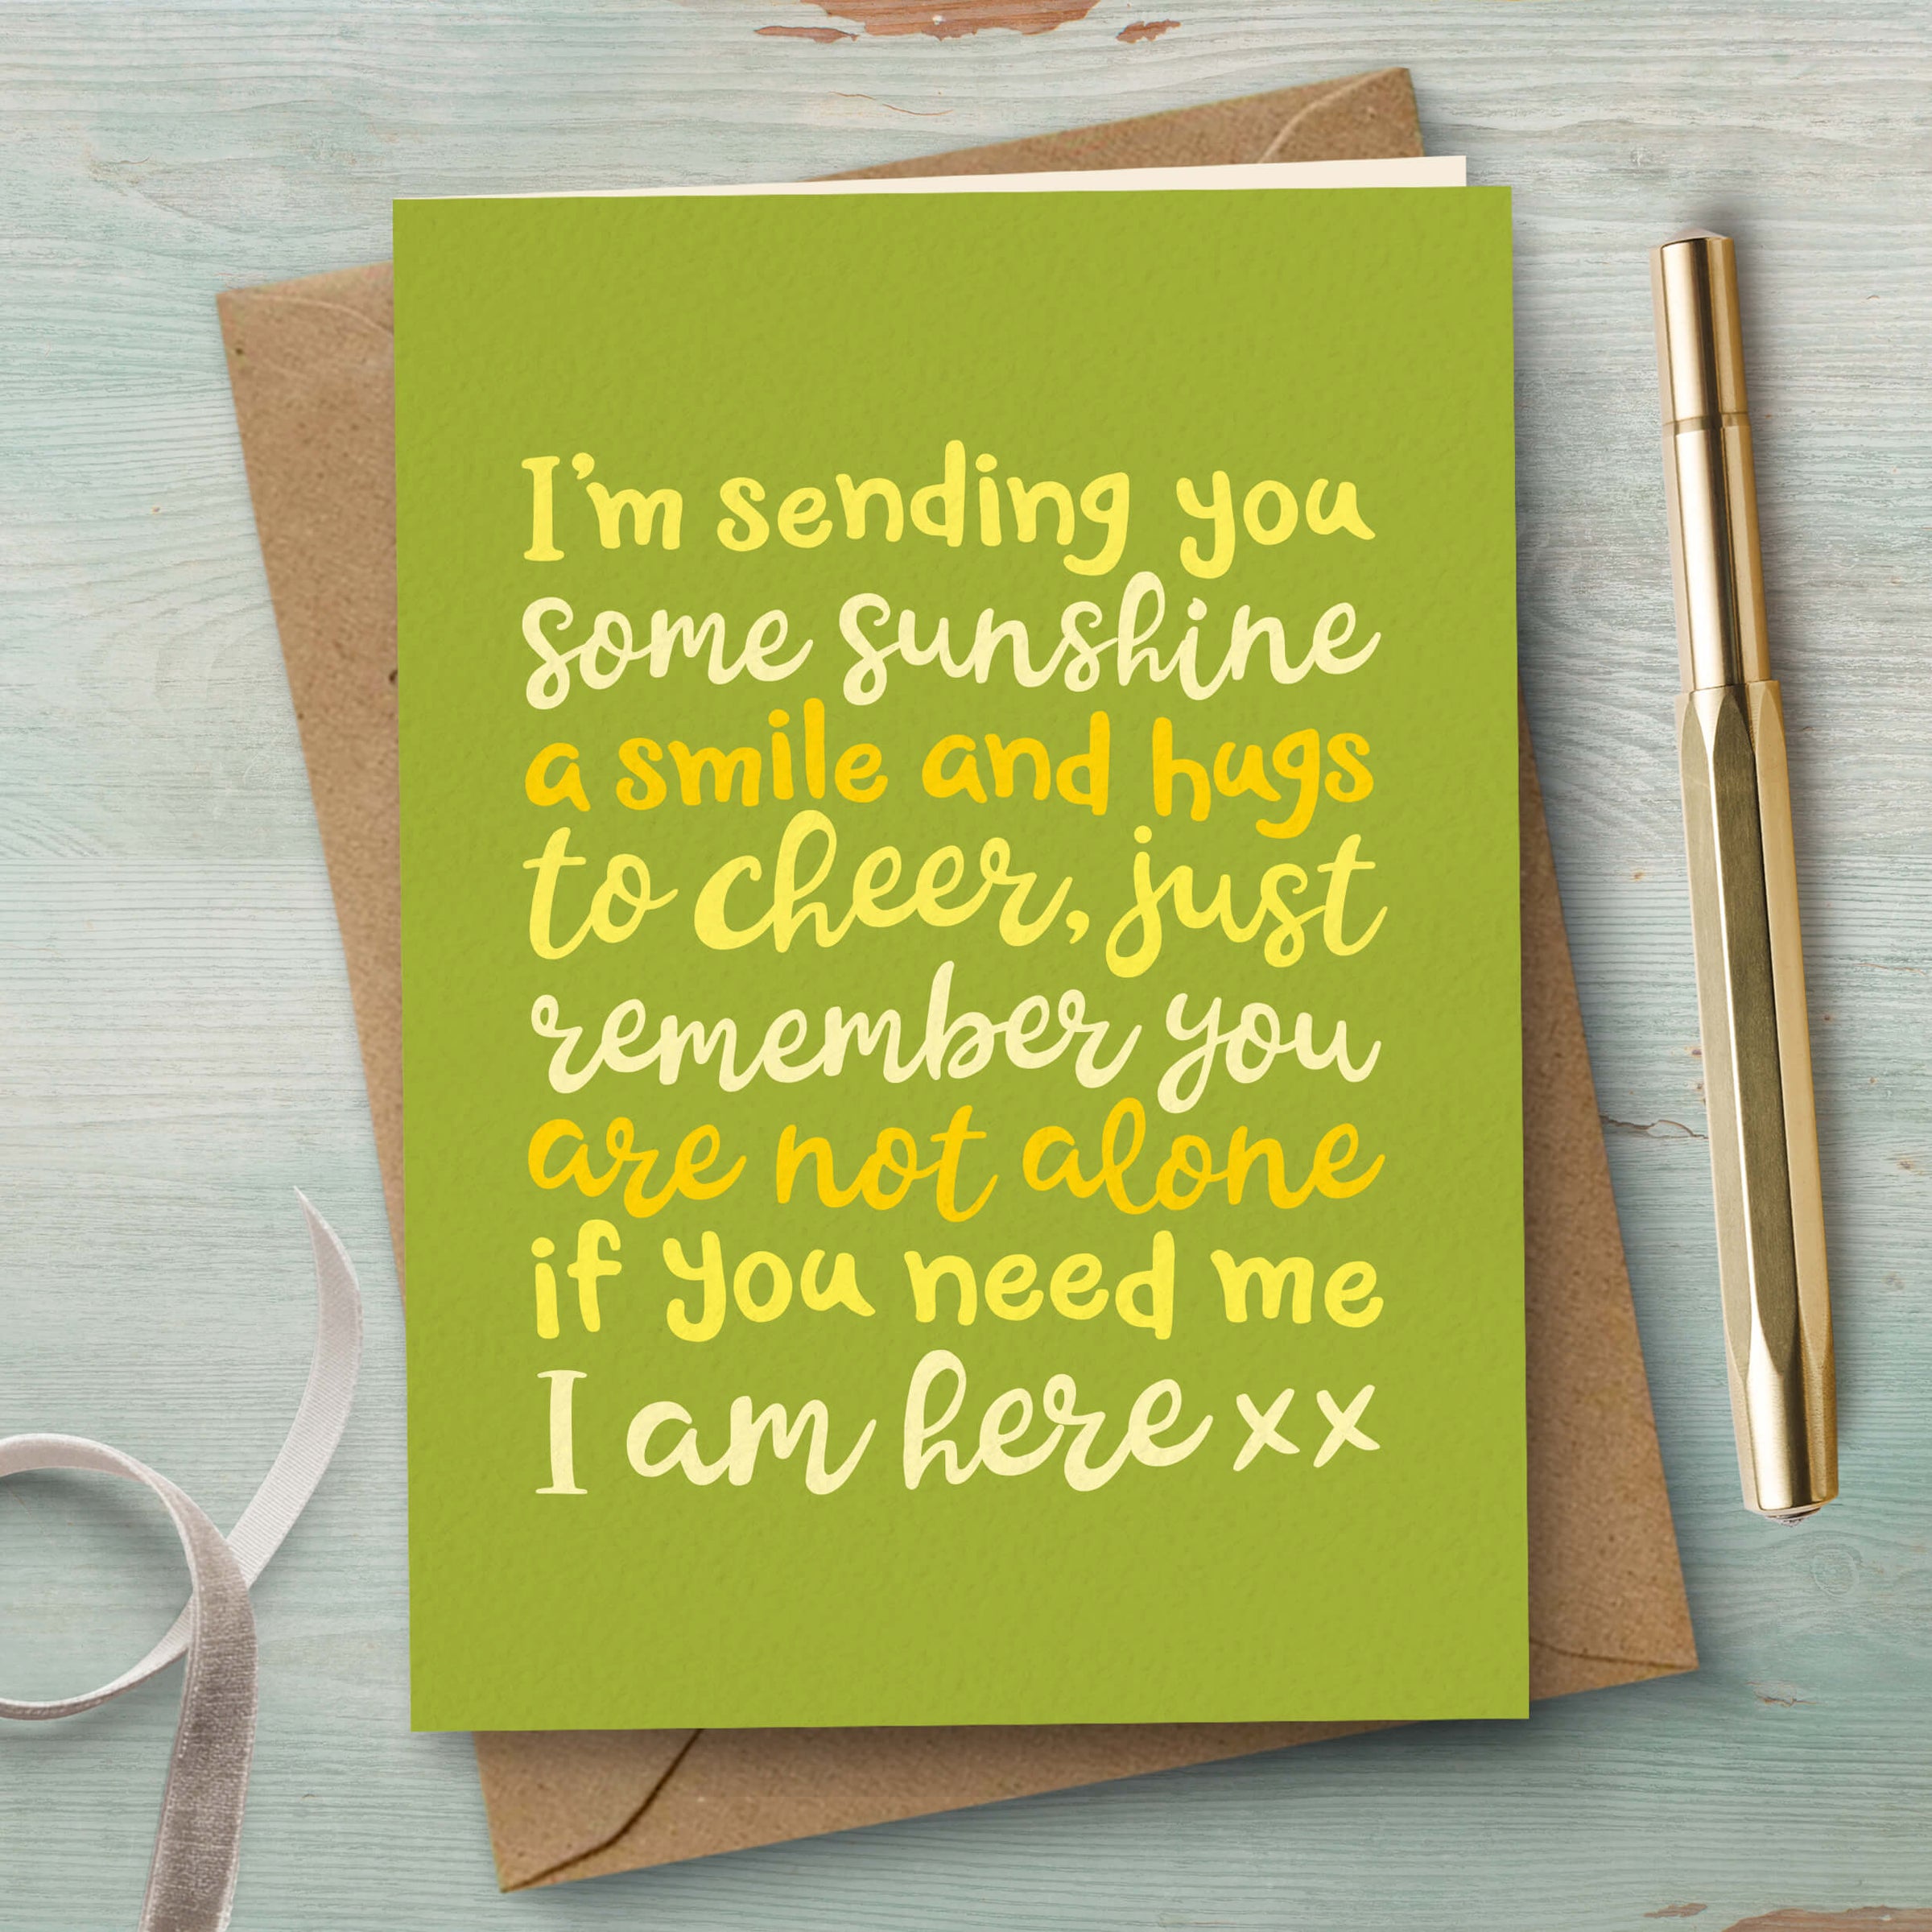 I'm sending you
some sunshine
a smile and hugs
to cheer, just
remember you
are not alone
if you need me
I am here xx